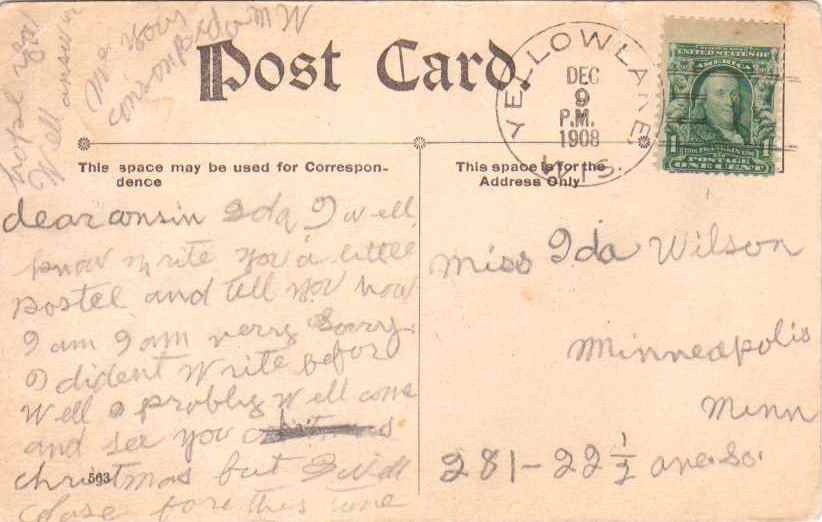 Post Card.
YELLOWLAKE, WIS.
DEC
9
P.M.
1908
UNITED STATES OF
AMERICA
1 1
POSTAGE
ONE CENT
This space may be used for Correspon-
dence
This space is for the
Address Only
dear consin Ida I well
know write you a little
postel and tell you how
I am I am verry Sorry
I dident write befor
Well I probbly well come
and see you
christmas but I well
close fore this time
563
hope you
Well answer
Me your
MW
Miss Ida Wilson
Minneapolis
Minn
281-22 1/2 ave. So.